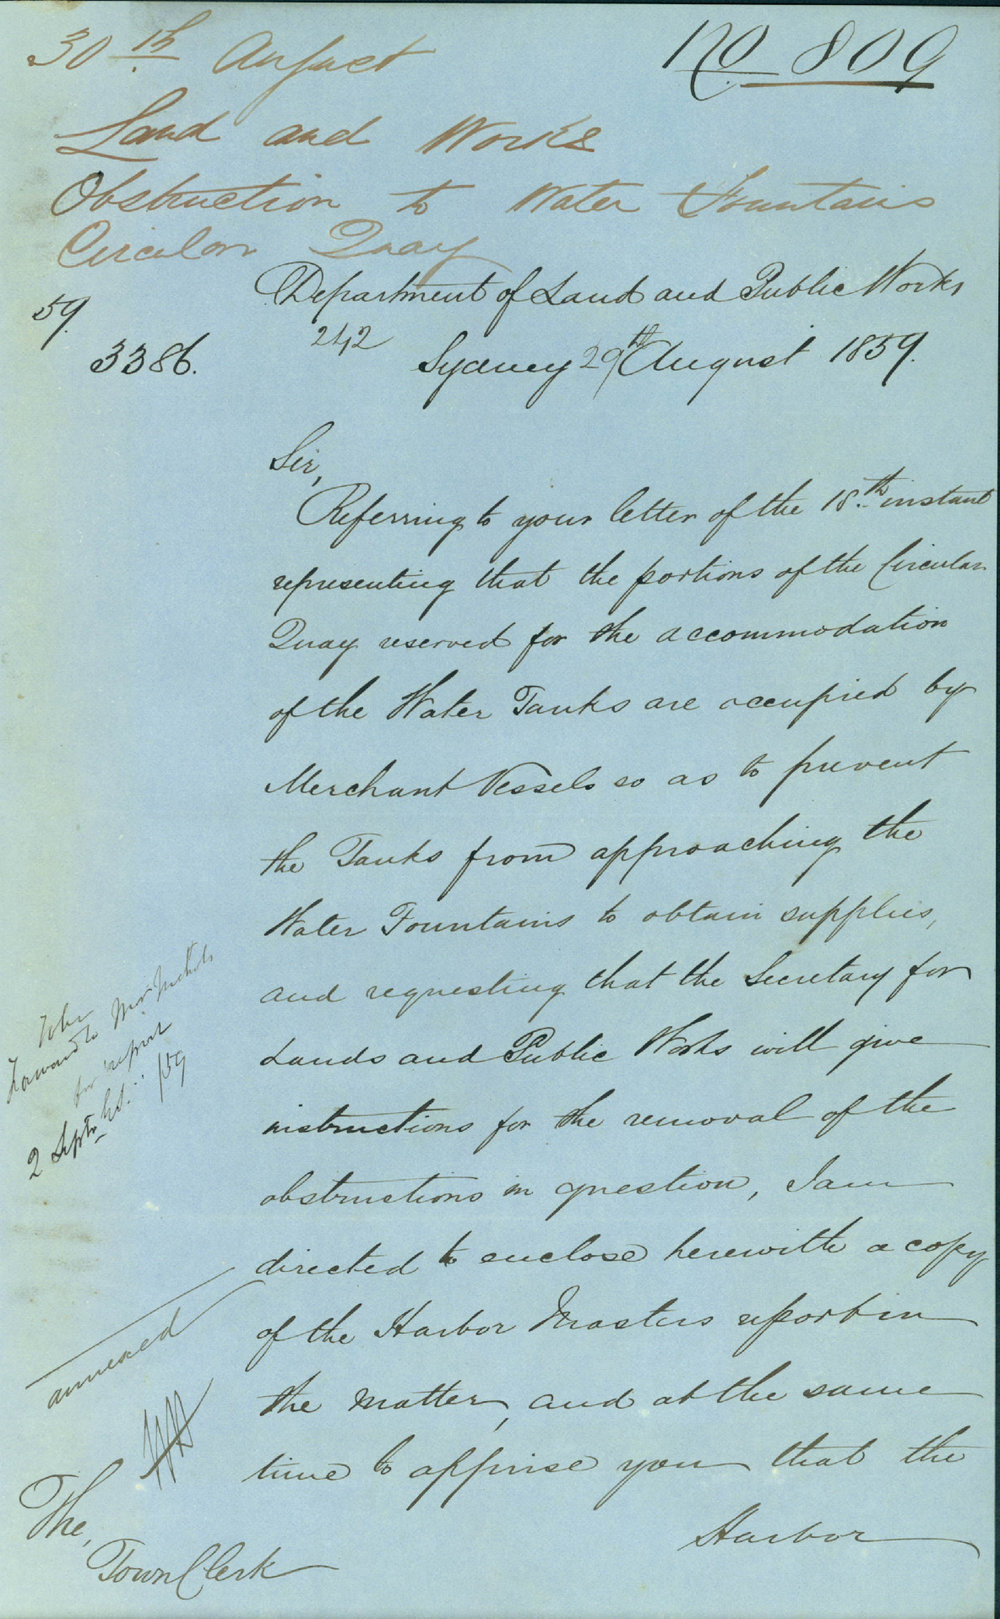 30th August
No 809
Land and Works
Obstruction to Water Fountains
Circular Quay
59.
3386.
Department of Land and Public Works
242
Sydney 29th August 1859.
Sir,
Referring to your letter of the 18th instant
representing that the portions of the Circular
Quay reserved for the accommodation
of the Water Tanks are occupied by
Merchant Vessels so as to prevent
the Tanks from approaching the
Water Fountains to obtain supplies,
and requesting that the Secretary for
Lands and Public Works will give
instructions for the removal of the
obstructions in question, I am
directed to enclose herewith a copy
of the Harbor Masters report in
the matter, and at the same
time to apprise you that the
Harbor
to Mr
for report
2 Sept /59
annexed
The,
Town Clerk